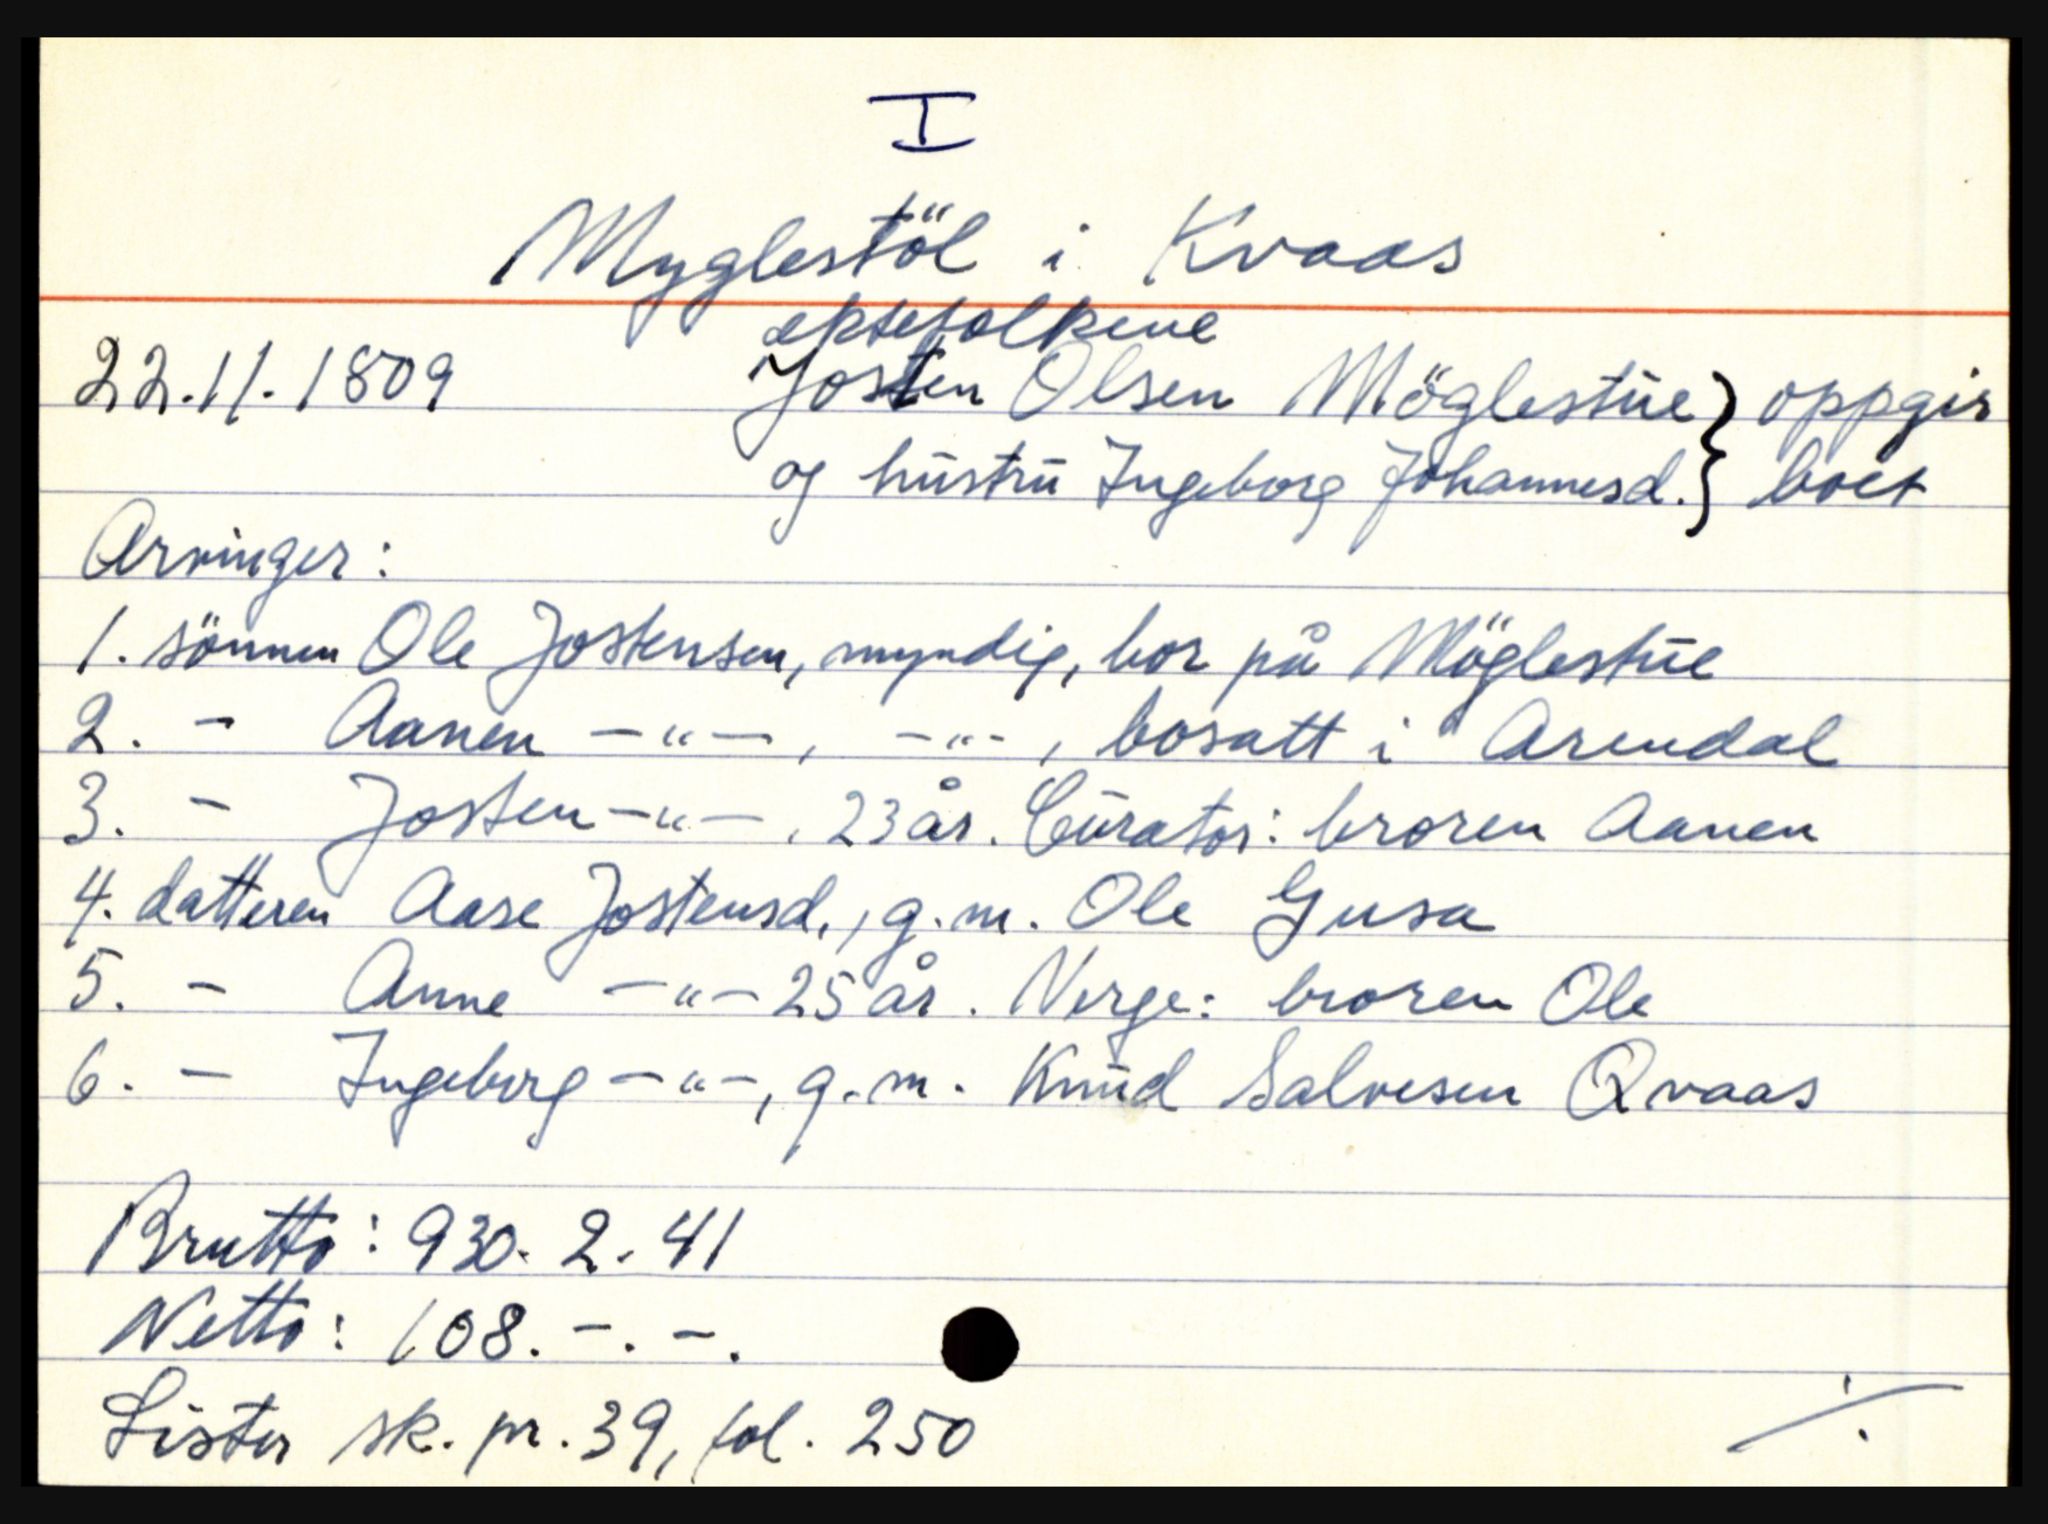 I
Myglestöl i Kvaas
ektefolkene
22.11.1809 Josten Olsen Möglestue } oppgir
og hustru Ingeborg Johannesd. } boet
Arvinger:
1. sönnen Ole Jostensen, myndig, bor på Möglestue
2. - Aanen -"-, -"-, bosatt i Arendal
3. - Josten -"-, 23 år. Curator: broren Aanen
4. datteren Aase Jostensd., g.m. Ole Gusa
5. - Anne -"- 25 år. Verge: broren Ole
6. - Ingeborg -"-, g.m. Knud Salvesen Qvaas
Brutto: 930. 2. 41
Netto: 108. -. -.
Lister sk. pr. 39, fol. 250